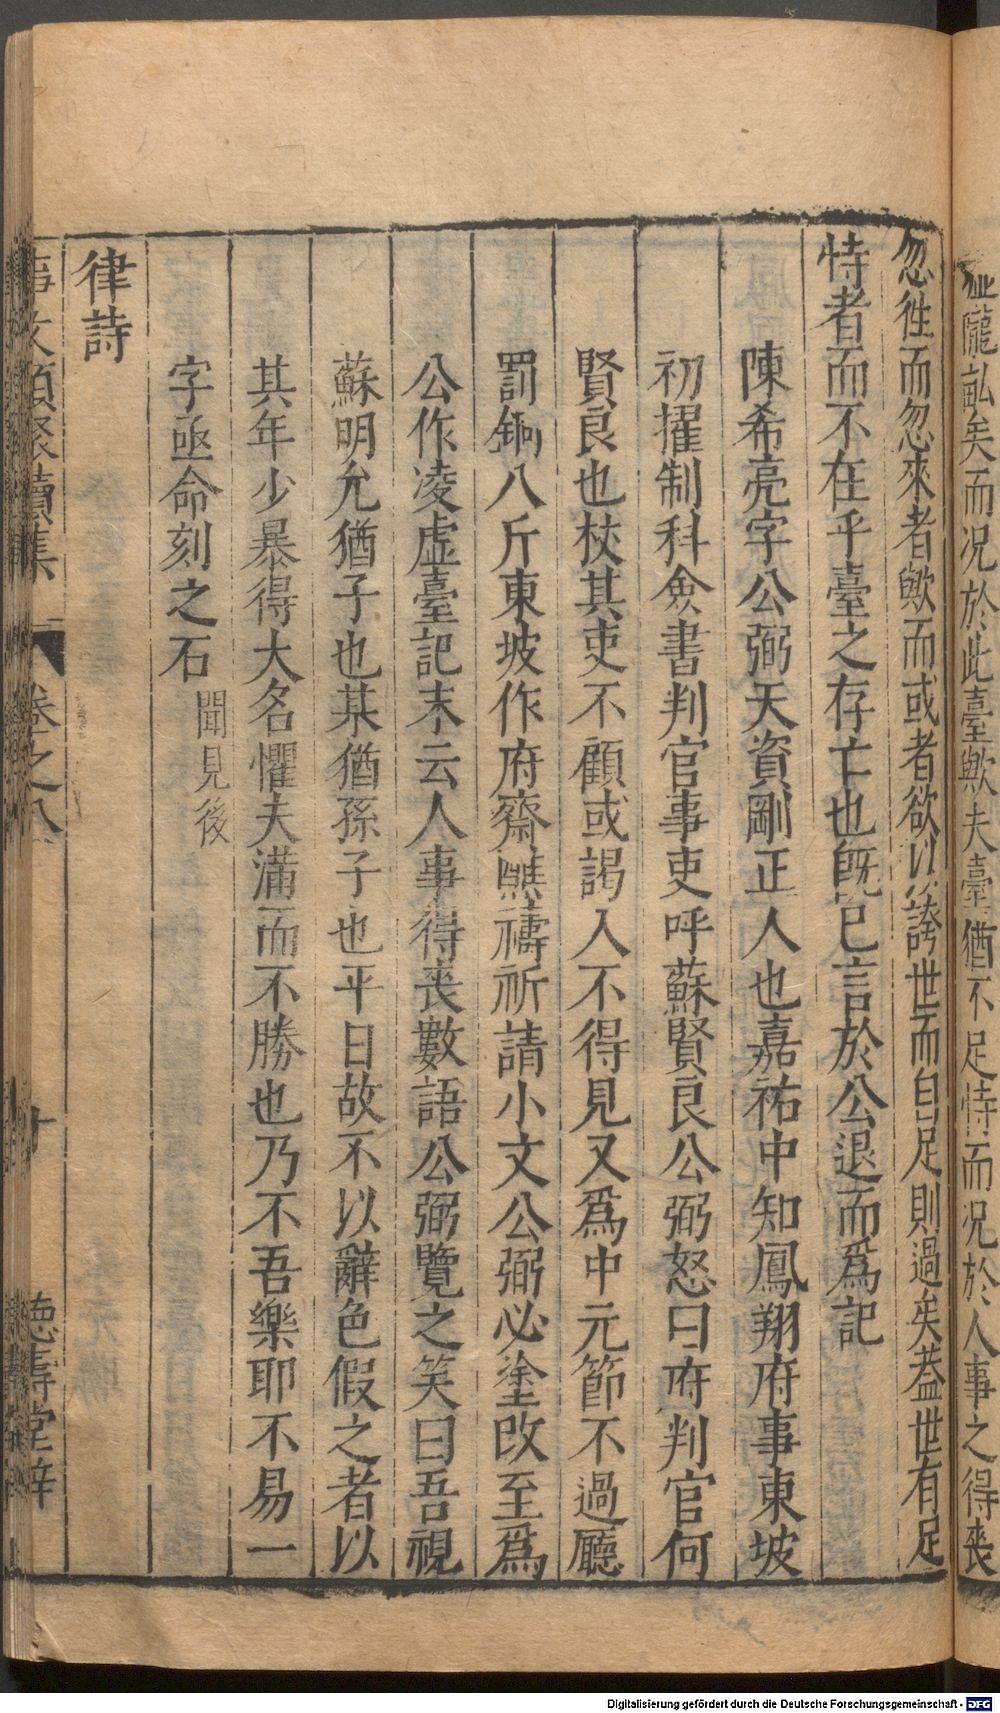 壠畝矣而况於此臺歟夫臺猶不足恃而况於人事之得丧
忽徃而忽來者歟而或者欲以誇世而自足則過矣葢世有足
恃者而不在乎臺之存亡也旣已言於公退而爲記
陳希亮字公弼天資剛正人也嘉祐中知鳳翔府事東坡
初擢制科僉書判官事吏呼蘇賢良公弼怒曰府判官何
賢良也杖其吏不顧或謁入不得見又爲中元節不過廳
罰銅八斤東坡作府齋醮禱祈請小文公弼必塗改至爲
公作凌虛臺記末云人事得丧數語公弼覽之笑曰吾視
蘇明允猶子也某猶孫子也平日故不以辭色假之者以
其年少暴得大名懼夫滿而不勝也乃不吾樂耶不易一
字亟命刻之石 聞見後
律詩
事文類聚續集 卷之八 十 德壽堂梓
Digitalisierung gefördert durch die Deutsche Forschungsgemeinschaft - DFG